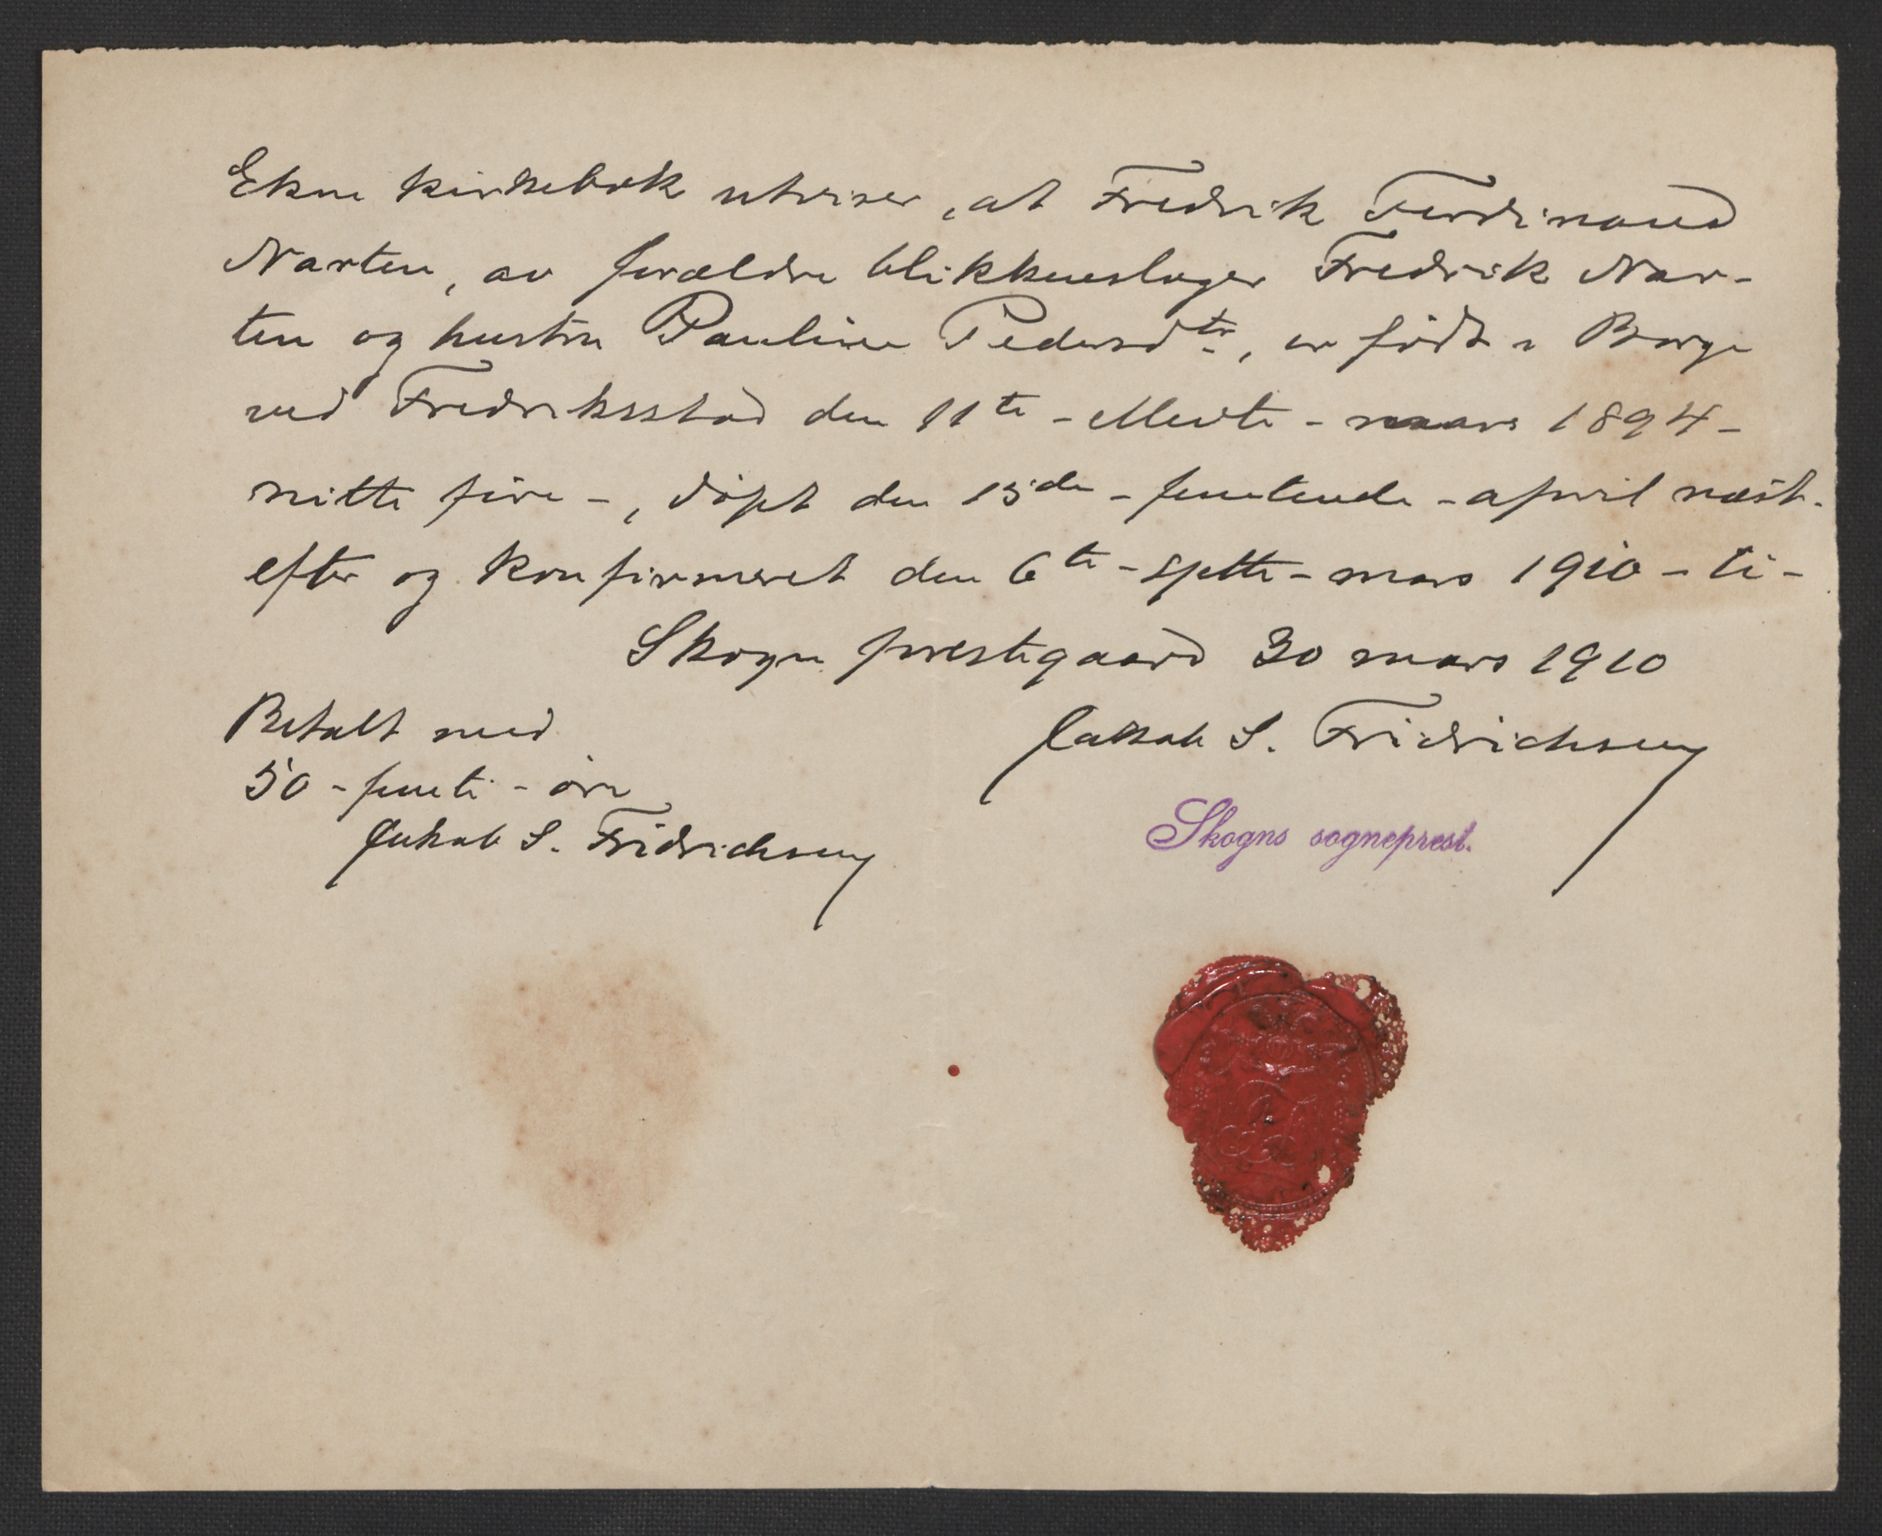 Ekne kirkebok utviser, at Fredrik Ferdinand
Narten, av forældre blikkenslager Fredrik Nar-
ten og hustru Pauline Pedersdtr., er født i Borge
ved Fredriksstad den 11te - ellevte - mars 1894 -
nitti fire -, døpt den 15de - femtende - april næst-
efter og konfirmeret den 6te - sjette - mars 1910 - ti -
Skogn prestegaard 30 mars 1910
Jakob S. Fridrichsen
Skogns sogneprest.
Betalt med
50 - femti - øre
Jakob S. Fridrichsen